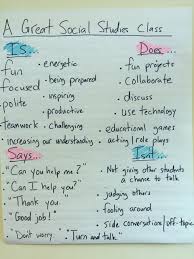 A Great Social Studies Class
Is...
• energetic
fun
• being prepared
focused
• inspiring
polite
• productive
teamwork
• challenging
• increasing our understanding
Does...
• fun projects
• Collaborate
• discuss
• use technology
• educational games
• acting / role plays
Says...
• "Can you help me?"
• "Can I help you?"
• "Thank you."
• "Good job!"
• "Don't worry."
• "Turn and talk."
Isn't...
• Not giving other students
a chance to talk
• judging others
• fooling around
• side conversation/off-topic